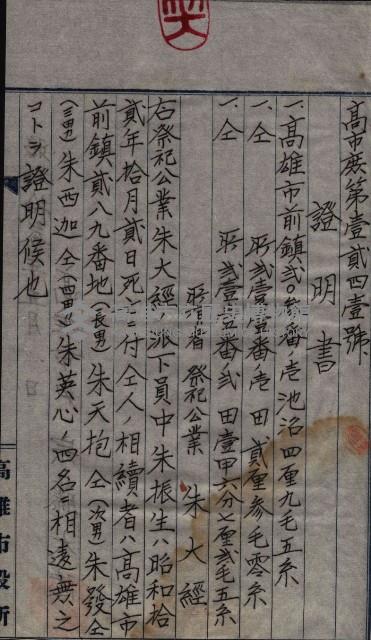 高市庶第壹貳四壹號
證明書
一、高雄市前鎮貳〇參番ノ壱 池沼 四厘九毛五糸
一、仝 所貳壹壹番ノ壱 田 貳厘參毛零糸
一、仝 所貳壹壹番ノ貳 田 壹甲六分七厘貳毛五糸
所有者 祭祀公業 朱大經
右祭祀公業朱大經派下員中朱振生ハ昭和拾
貳年拾月貳日死亡ニ付仝人ノ相續者ハ高雄市
前鎮貳八九番地(長男)朱天抱仝(次男)朱發仝
(三男)朱西迦仝(四男)朱英心ノ四名ニ相違無之
コトヲ證明候也
月 日
高雄市役所